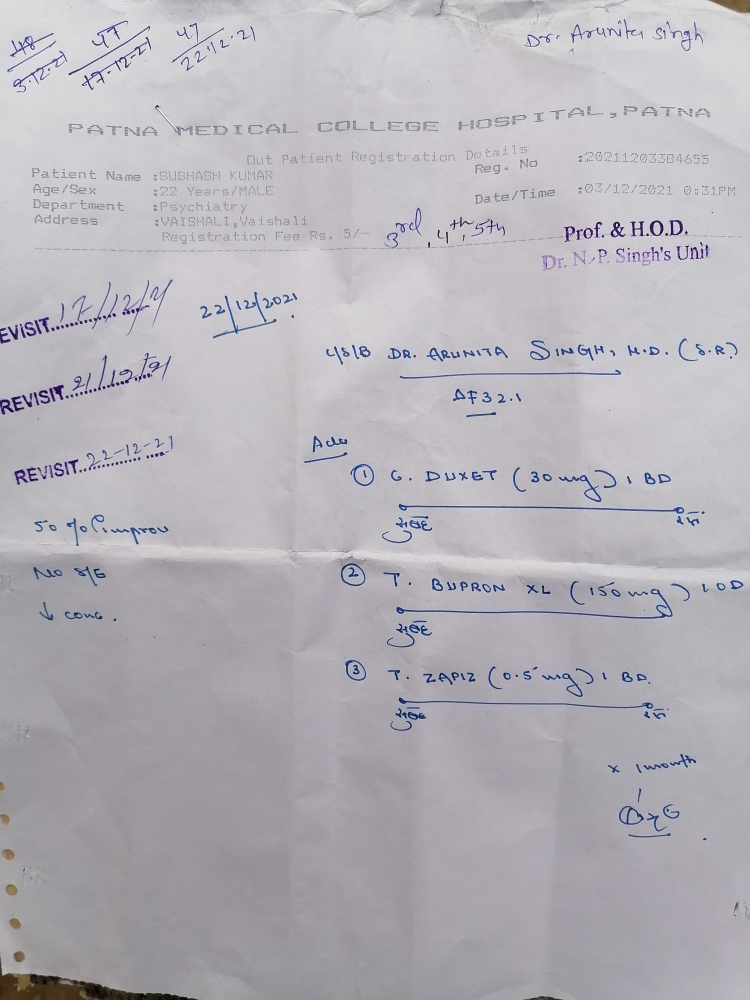 48 47 47
3-12-21 17-12-21 22.12.21
Dr. Arunita Singh
PATNA MEDICAL COLLEGE HOSPITAL, PATNA
Out Patient Registration Details
Patient Name :SUBHASH KUMAR Reg. No :20211203384655
Age/Sex :22 Years/MALE
Department :Psychiatry Date/Time :03/12/2021 0:31PM
Address :VAISHALI,Vaishali
Registration Fee Rs. 5/- 3rd, 4th, 5th
Prof. & H.O.D.
Dr. N. P. Singh's Unit
EVISIT 17/12/21 22/12/2021
DR. ARUNITA SINGH, M.D. (S.R.)
REVISIT 21/12/21
F32.1
Adv
REVISIT 22-12-21
① C. DUXET (30mg) 1 BD
सुबह
50 % improv
No S/E
② T. BUPRON XL (150mg) 1 OD
↓ conc.
सुबह
③ T. ZAPIZ (0.5mg) 1 BD.
सुबह
x 1 month